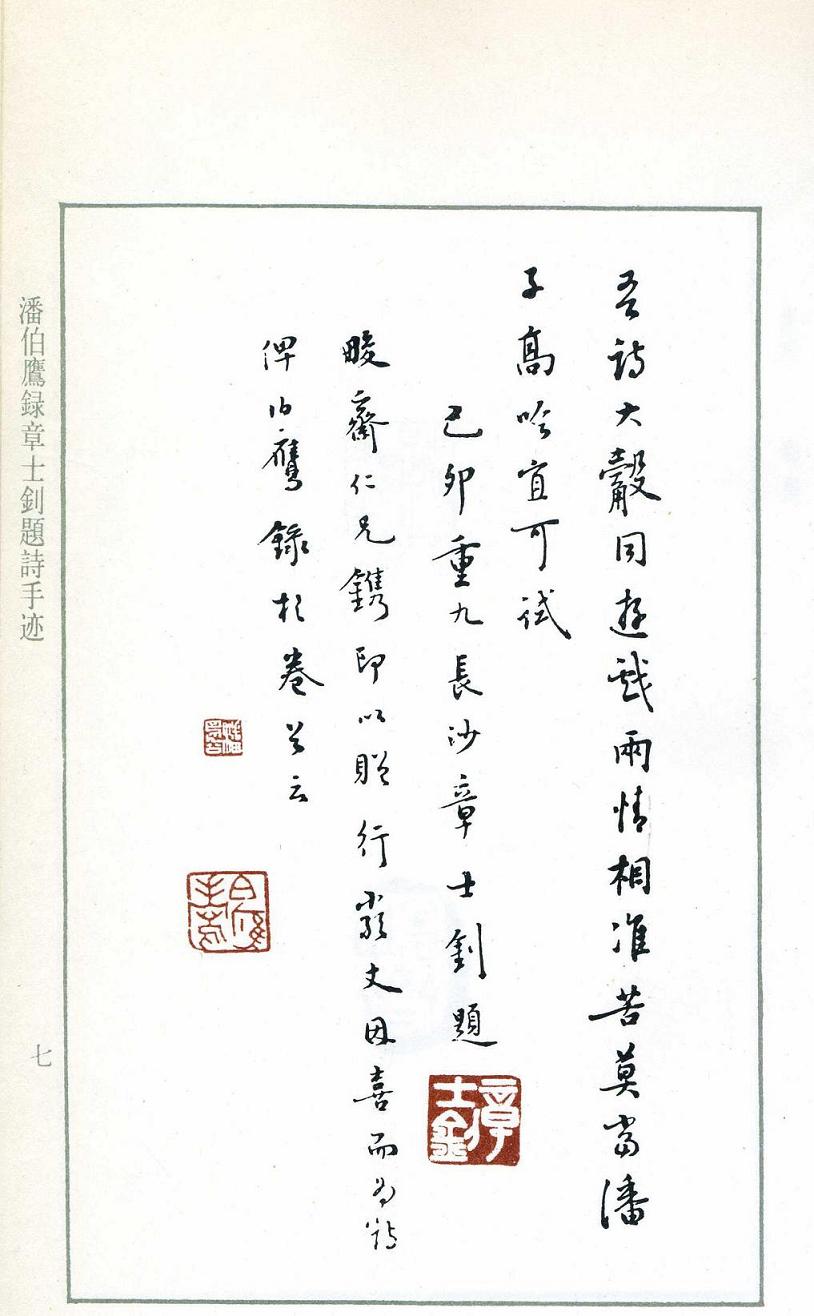 吾詩大觳同遊戲兩情相准苦莫當潘
子高吟宜可試
己卯重九長沙章士釗題
章士釗
畯齋仁兄鐫印以贈行嚴丈丈因喜而為詩
俾伯鷹錄於卷首云
潘伯鷹録章士釗題詩手迹
七